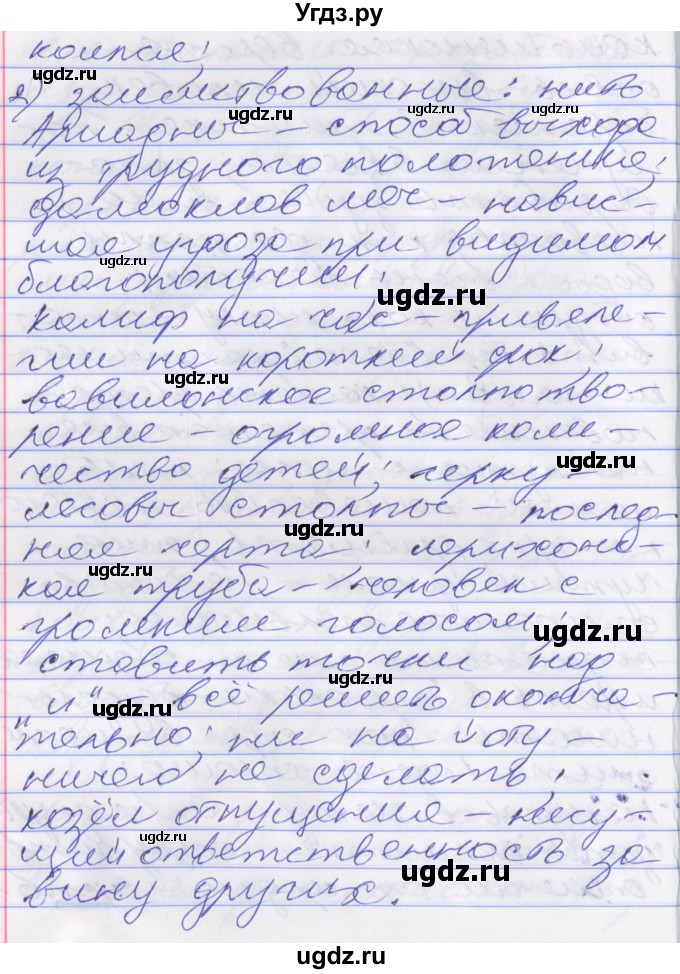 Угдз.ру
копья;
2) заимствованные: нить
Ариадны – способ выхода
из трудного положения;
дамоклов меч – навис-
шая угроза при видимом
благополучии;
калиф на час – привеле-
гии на короткий срок;
вавилонское столпотво-
рение – огромное коли-
чество детей; герку-
лесовы столпы – послед-
няя черта; иерихонс-
кая труба – человек с
громким голосом;
ставить точки над
"и" – всё решить оконча-
тельно; ни на йоту –
ничего не сделать;
козёл отпущения – несу-
щий ответственность за
вину других.
ugdz.ru